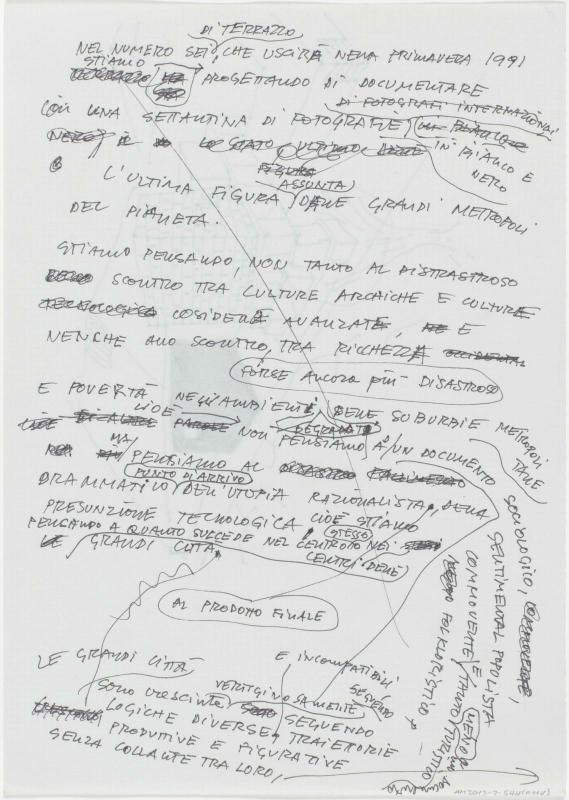 DI TERRAZZO
NEL NUMERO SEI, CHE USCIRÀ NELLA PRIMAVERA 1991
STIAMO
PROGETTANDO DI DOCUMENTARE
DI FOTOGRAFI INTERNAZIONALI
CON UNA SETTANTINA DI FOTOGRAFIE
IN BIANCO E
NERO
LO STATO ULTIMO DELLE
FIGURA
ASSUNTA
L'ULTIMA FIGURA DALLE GRANDI METROPOLI
DEL PIANETA.
STIAMO PENSANDO, NON TANTO AL DISTRASTROSO
SCONTRO TRA CULTURE ARCAICHE E CULTURE
TECNOLOGICA COSIDETTE AVANZATE, E
NENCHE ALLO SCONTRO, TRA RICCHEZZA OCCIDENTAL
FORSE ANCORA PIÙ DISASTROSO
E POVERTÀ NEGLI AMBIENTI DELLE SUBURBIE METROPOLITANE
CIOÈ DEGRADATI
PAROLE NON PENSIAMO A UN DOCUMENTO
SOCIOLOGICO,
SENTIMENTAL POPULISTA
COMMOVENTE E
FOLKLORISTICO
TANTO MENO
TURISTICO
MA PENSIAMO AL FALLIMENTO
PUNTO DI ARRIVO
DRAMMATICO DELL'UTOPIA RAZIONALISTA, DELLA
PRESUNZIONE TECNOLOGICA CIOÈ STIAMO
PENSANDO A QUANTO SUCCEDE NEL CENTRO NEI
STESSO
CENTRI DELLE
LE GRANDI CITTÀ
AL PRODOTTO FINALE
LE GRANDI CITTÀ
E INCOMPATIBILI
SONO CRESCIUTE VERTIGINOSAMENTE SEGUENDO
SEGUENDO
LOGICHE DIVERSE, TRAIETTORIE
PRODUTTIVE E FIGURATIVE
SENZA COLLANTE TRA LORO,